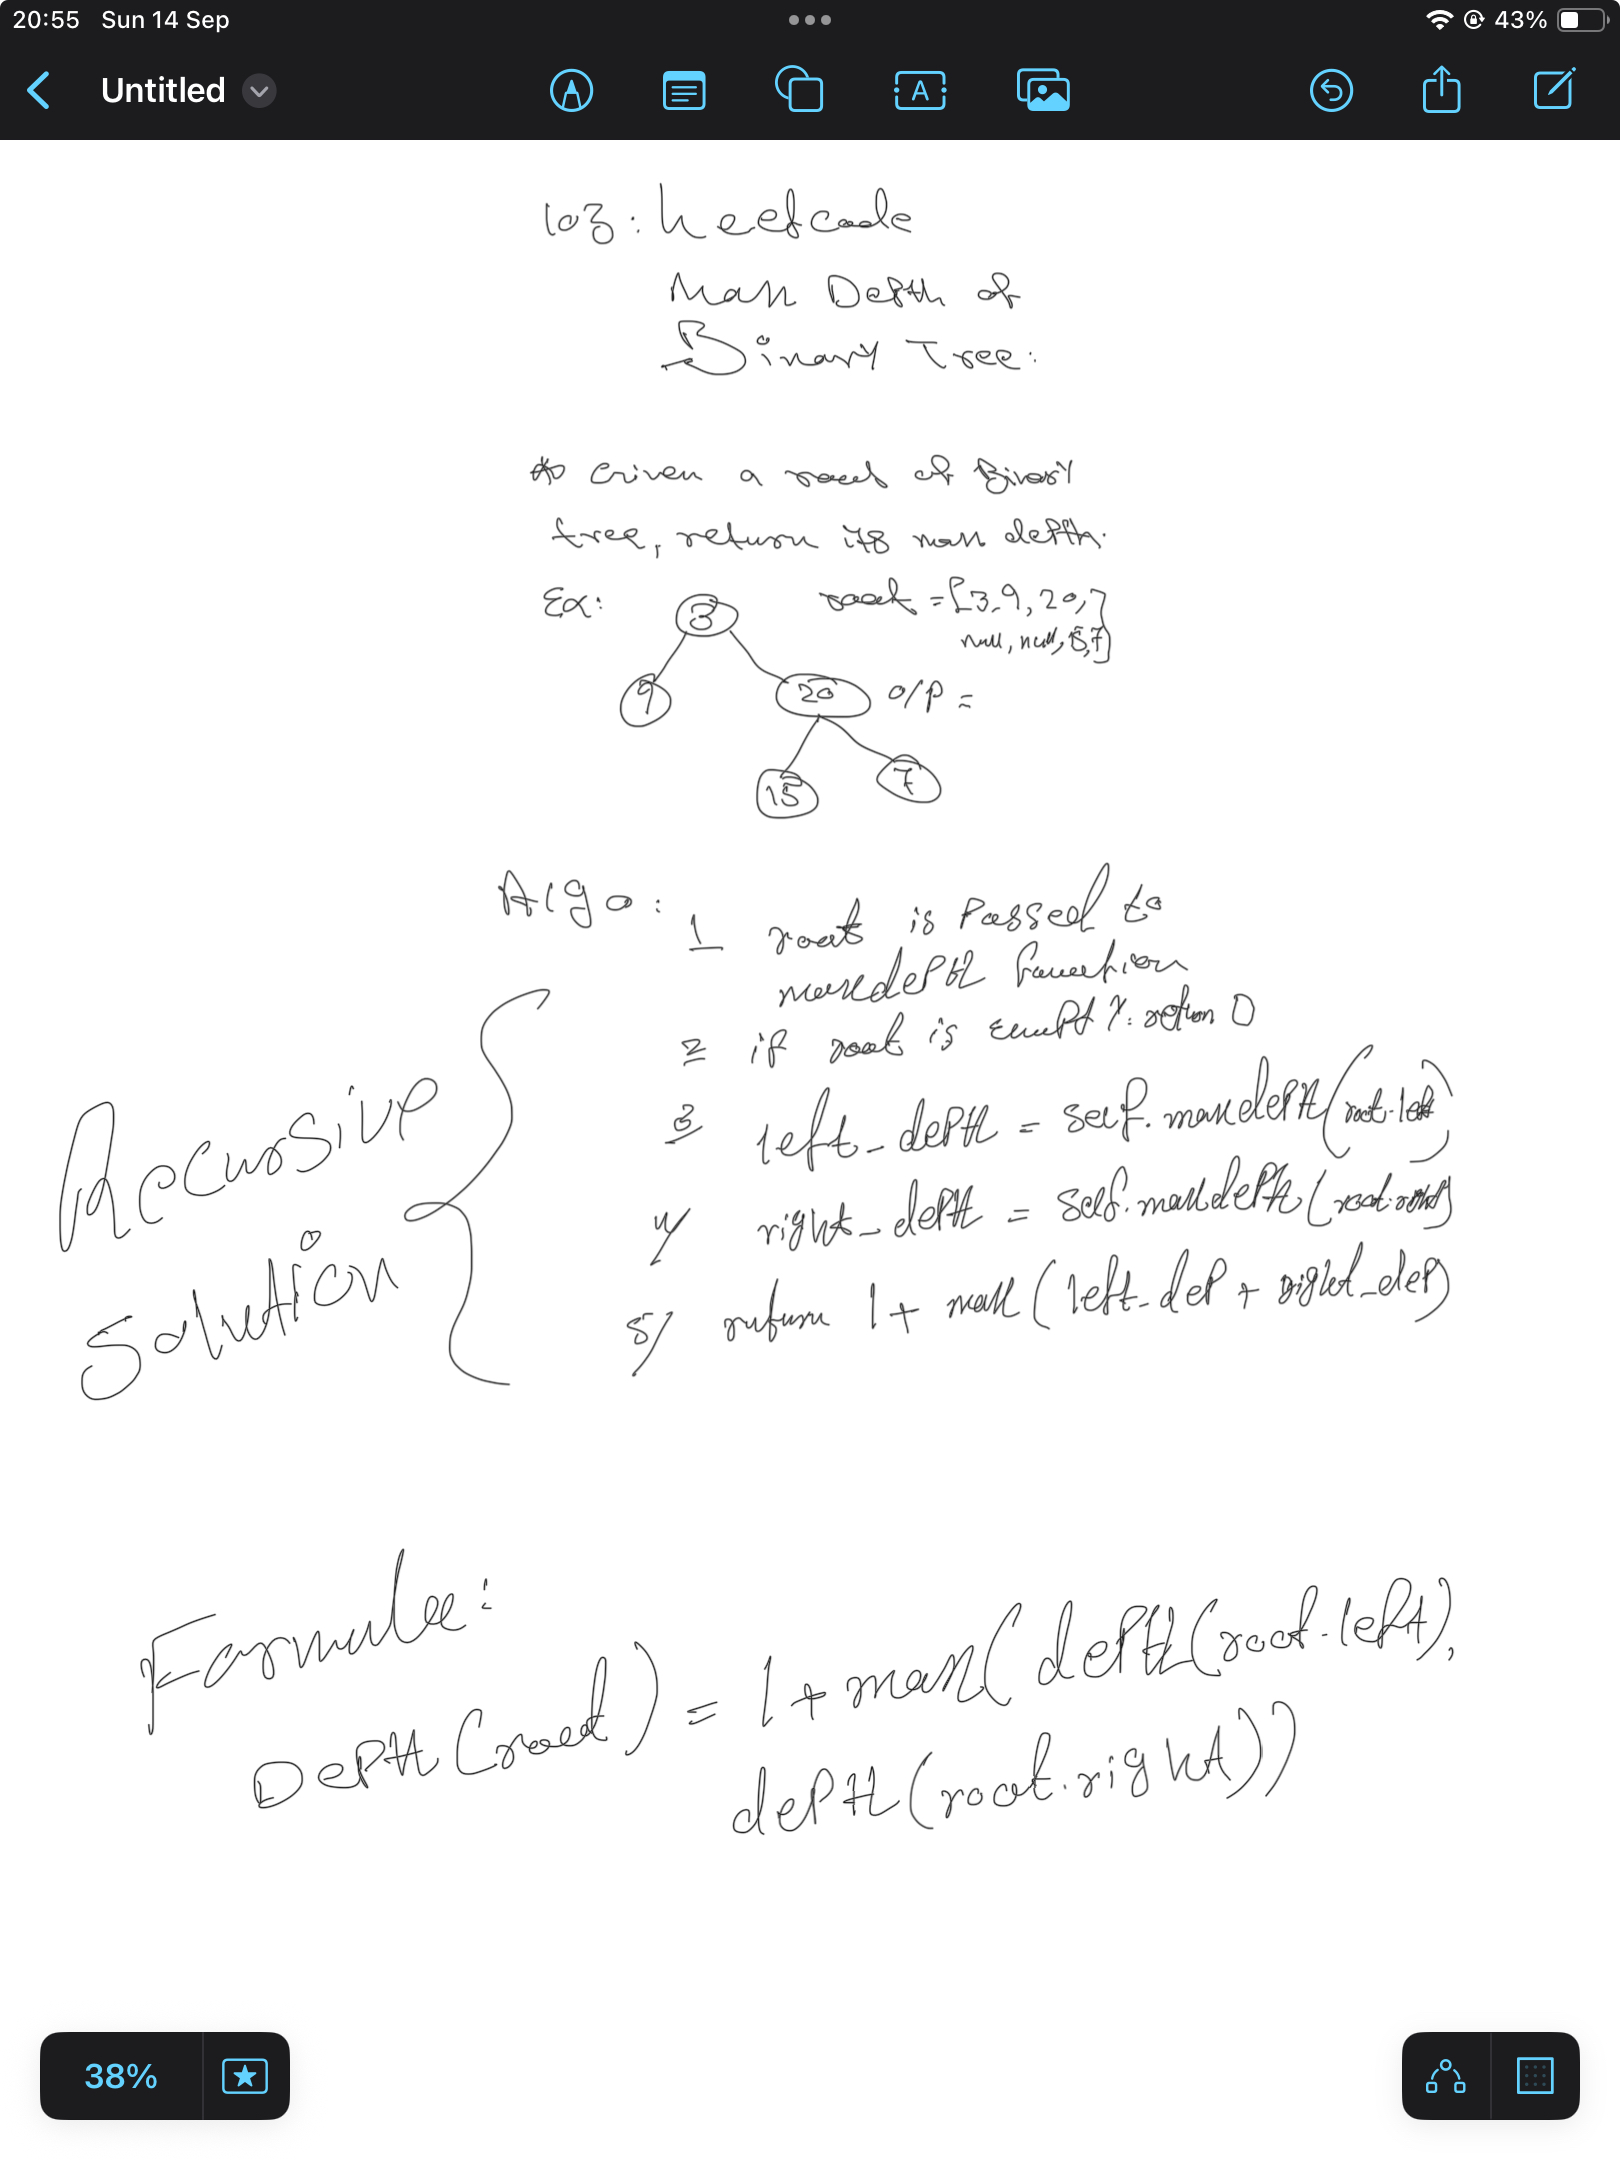 20:55 Sun 14 Sep
43%
Untitled
A
103: Leetcode
Max Depth of
Binary Tree:
Given a root of Binary
tree, return its max depth.
Ex:
root = [3,9,20,
null, null, 15,7]
3
9
20
O/P =
15
7
Algo:
1 root is Passed to
maxdepth function
2 if root is empty: return 0
3 left_depth = self.maxdepth(root.left)
4/ right_depth = self.maxdepth(root.right)
5/ return 1 + max(left_dep + right_dep)
Recursive
Solution
Formula:
Depth(root) = 1 + max(depth(root.left),
depth(root.right))
38%